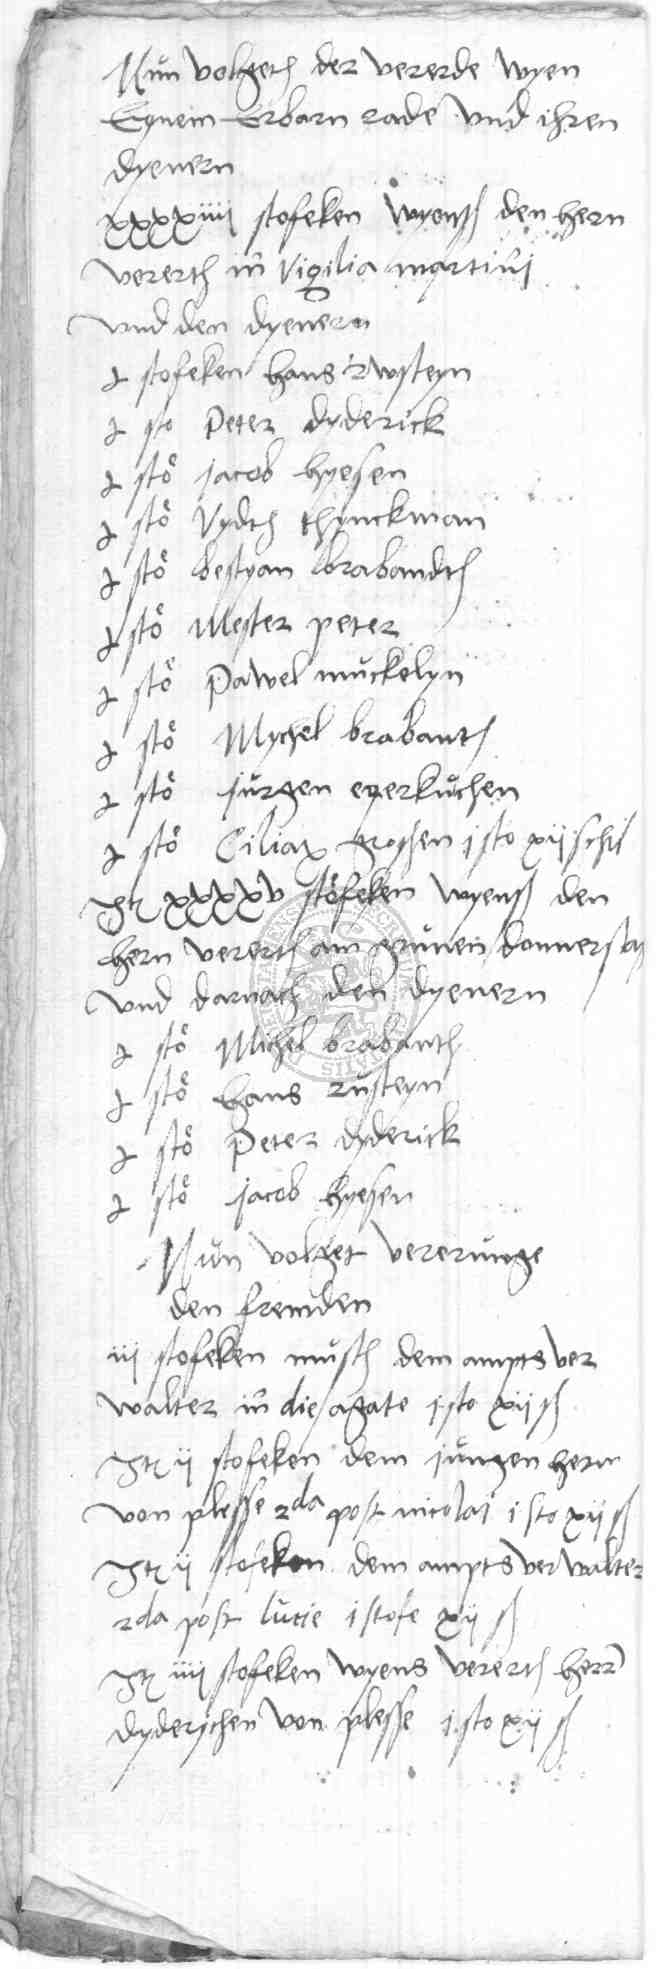 Nun volgeth der vererde wyen
Eynem Erbarn rade vnd ihren
dyenern
xxxxiiij stofeken wyenß den hern
vererth in vigilia martini
vnd den dyenern
j stofeken hans rwsteyn
j sto Peter dyderick
j sto jacob hyesen
j sto Vydth thynckman
j sto bestyan brabandth
j sto Mester peter
j sto Pawel muckelyn
j sto Mychel brabanth
j sto jurgen eyerkuchen
j sto Ciliax grossen j sto xij schil
Itz xxxxv stofeken wyenß den
hern vererth am grunen donnerstag
vnd darnach den dyenern
j sto Michel brabanth
j sto hans rusteyn
j sto Peter dyderick
j sto jacob hyesen
Nun volget vererunge
den fremden
iij stofeken musth dem ampts ver
walter in die agate j sto xij ß
Itz ij stofeken dem jungen hern
von plesse 2da post nicolai j sto xij ß
Itz ij stofeken dem ampts verwalter
2da post lucie j stofe xij ß
Itz iiij stofeken wyens vererth herr
dyderychen von plesse j sto xij ß